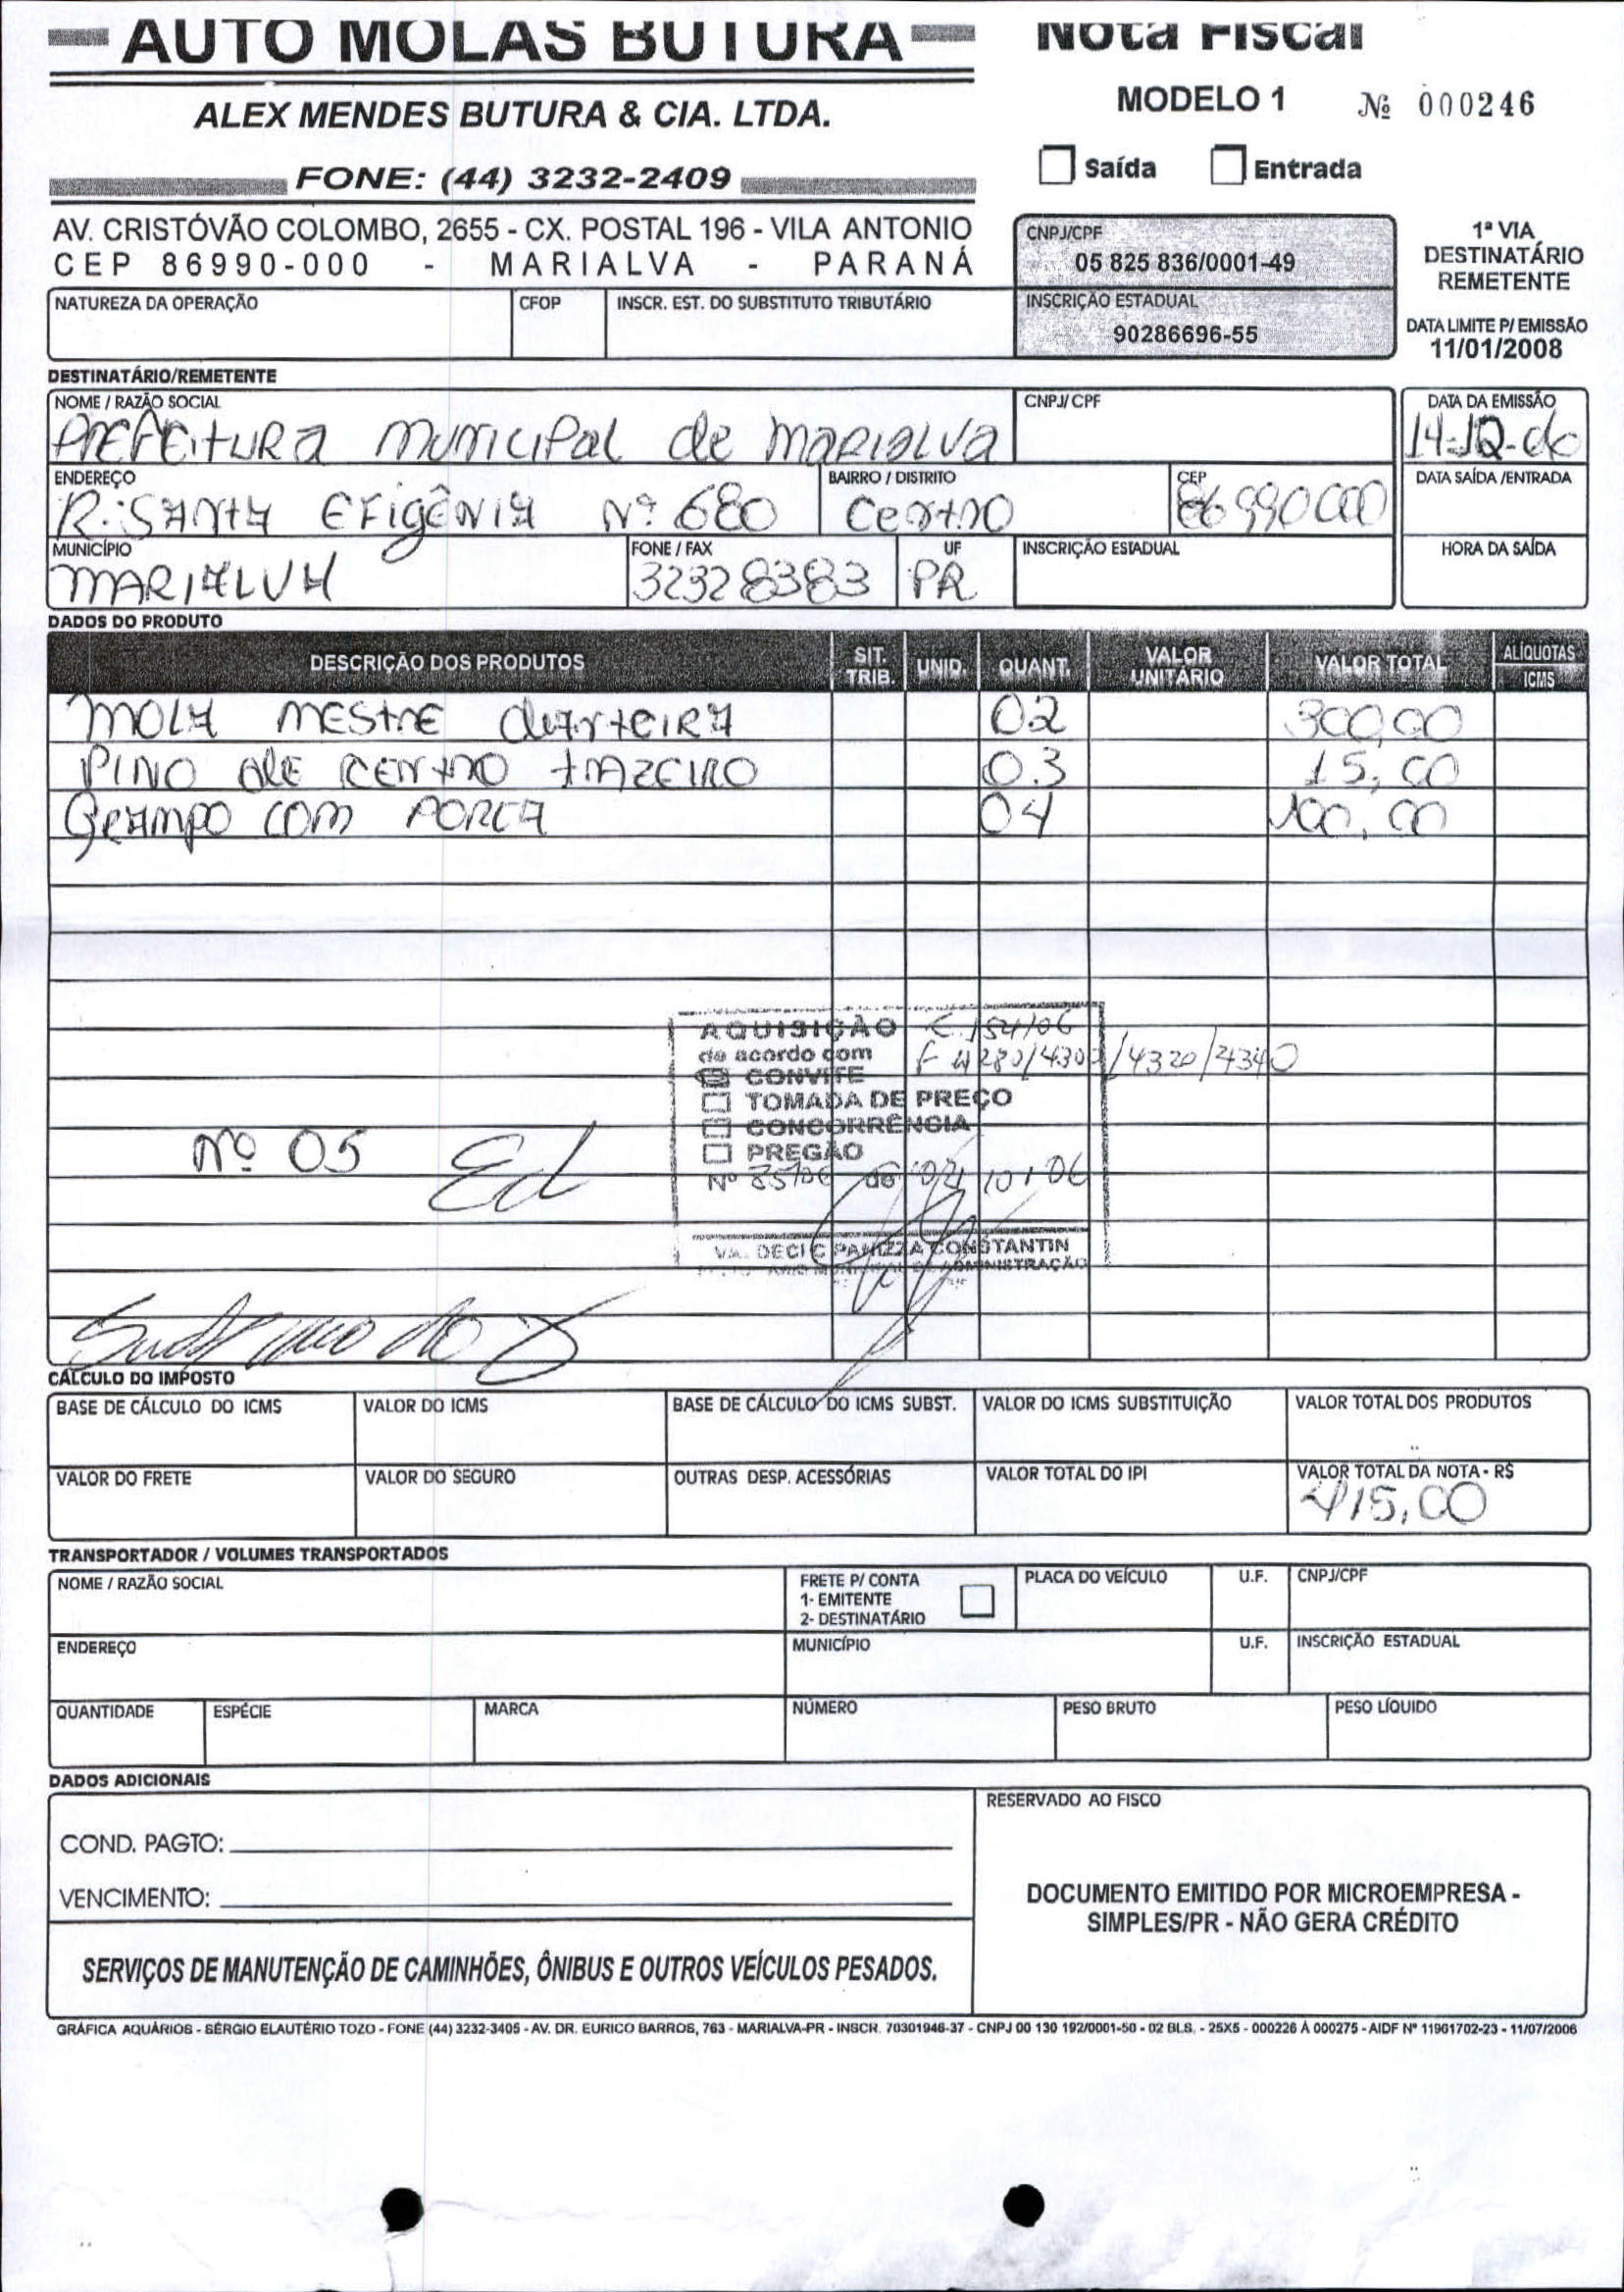 AUTO MOLAS BUTURA
ALEX MENDES BUTURA & CIA. LTDA.
FONE: (44) 3232-2409
AV. CRISTÓVÃO COLOMBO, 2655 - CX. POSTAL 196 - VILA ANTONIO
CEP 86990-000 - MARIALVA - PARANÁ
Nota Fiscal
MODELO 1 Nº 000246
Saída Entrada
CNPJ/CPF
05 825 836/0001-49
INSCRIÇÃO ESTADUAL
90286696-55
1ª VIA
DESTINATÁRIO
REMETENTE
DATA LIMITE P/ EMISSÃO
11/01/2008
NATUREZA DA OPERAÇÃO CFOP INSCR. EST. DO SUBSTITUTO TRIBUTÁRIO
DESTINATÁRIO/REMETENTE
NOME / RAZÃO SOCIAL CNPJ/CPF DATA DA EMISSÃO
PREFEITURA MUNICIPAL de MARIALVA 14-12-06
ENDEREÇO BAIRRO / DISTRITO CEP DATA SAÍDA /ENTRADA
R. SANTA EFIGÊNIA Nº 680 Centro 86990000
MUNICÍPIO FONE / FAX UF INSCRIÇÃO ESTADUAL HORA DA SAÍDA
MARIALVA 32328383 PR
DADOS DO PRODUTO
DESCRIÇÃO DOS PRODUTOS SIT. TRIB. UNID. QUANT. VALOR UNITÁRIO VALOR TOTAL ALÍQUOTAS ICMS
MOLA MESTRE 02 300,00
PINO DE CENTRO TRAZEIRO 03 15,00
GRAMPO COM PORCA 04 100,00
AQUISIÇÃO C. 154/06
de acordo com F 4280/4300/4320/4340
CONVITE
TOMADA DE PREÇO
CONCORRÊNCIA
PREGÃO
Nº 05 Ed
Nº de 10 06
PANIZZA CONSTANTIN
ADMINISTRAÇÃO
CÁLCULO DO IMPOSTO
BASE DE CÁLCULO DO ICMS VALOR DO ICMS BASE DE CÁLCULO DO ICMS SUBST. VALOR DO ICMS SUBSTITUIÇÃO VALOR TOTAL DOS PRODUTOS
VALOR DO FRETE VALOR DO SEGURO OUTRAS DESP. ACESSÓRIAS VALOR TOTAL DO IPI VALOR TOTAL DA NOTA - R$
415,00
TRANSPORTADOR / VOLUMES TRANSPORTADOS
NOME / RAZÃO SOCIAL FRETE P/ CONTA PLACA DO VEÍCULO U.F. CNPJ/CPF
1- EMITENTE
2- DESTINATÁRIO
ENDEREÇO MUNICÍPIO U.F. INSCRIÇÃO ESTADUAL
QUANTIDADE ESPÉCIE MARCA NÚMERO PESO BRUTO PESO LÍQUIDO
DADOS ADICIONAIS
COND. PAGTO:
VENCIMENTO:
SERVIÇOS DE MANUTENÇÃO DE CAMINHÕES, ÔNIBUS E OUTROS VEÍCULOS PESADOS.
RESERVADO AO FISCO
DOCUMENTO EMITIDO POR MICROEMPRESA -
SIMPLES/PR - NÃO GERA CRÉDITO
GRÁFICA AQUÁRIOS - SÉRGIO ELAUTÉRIO TOZO - FONE (44) 3232-3405 - AV. DR. EURICO BARROS, 763 - MARIALVA-PR - INSCR. 70301946-37 - CNPJ 00 130 192/0001-50 - 02 BLS. - 25X5 - 000226 À 000275 - AIDF Nº 11961702-23 - 11/07/2006